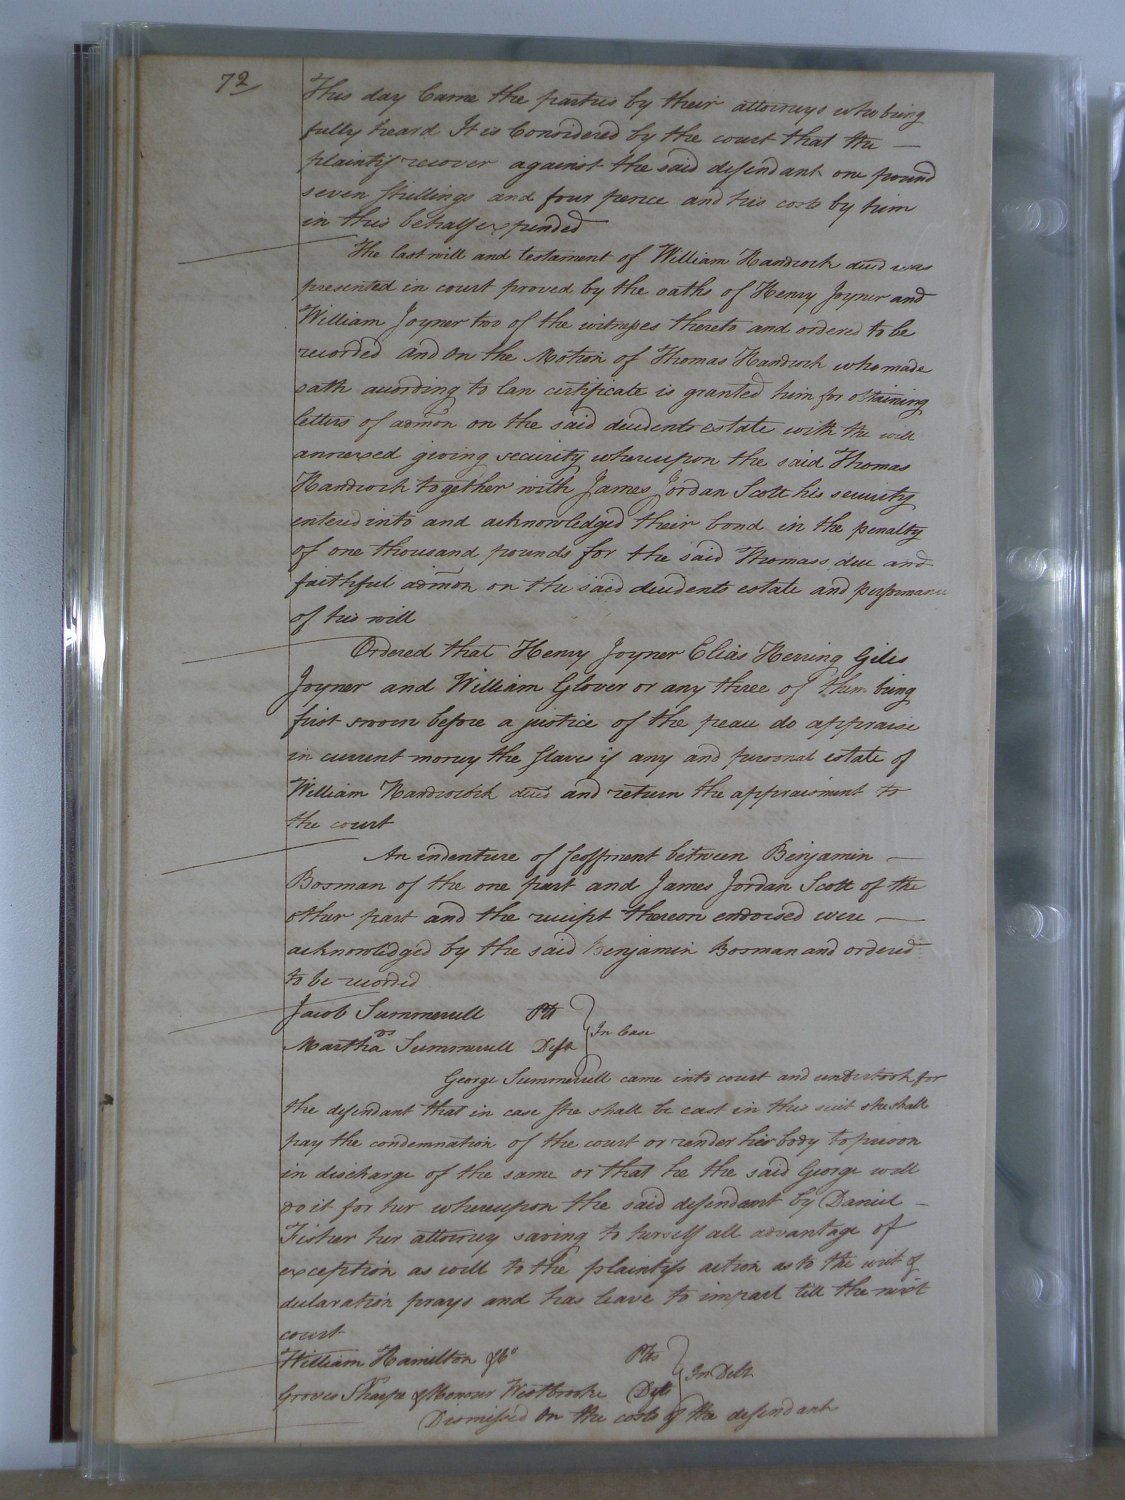 72
This day Came the parties by their attorneys who being
fully heard It is Considered by the court that the —
plaintif recover against the said defendant one pound
seven shillings and four pence and his costs by him
in this behalf expended
The last will and testament of William Handcock decd was
presented in court proved by the oaths of Henry Joyner and
William Joyner two of the witnesses thereto and ordered to be
recorded and On the Motion of Thomas Handcock who made
oath according to law certificate is granted him for obtaining
letters of admon on the said decedents estate with the will
annexed giving security whereupon the said Thomas
Handcock together with James Jordan Scott his security
entered into and acknowledged their bond in the penalty
of one thousand pounds for the said Thomass due and
faithful admon on the said decedents estate and performance
of his will
Ordered that Henry Joyner Elias Herring Giles
Joyner and William Glover or any three of them being
first sworn before a justice of the peace do appraise
in current money the slaves if any and personal estate of
William Handcock decd and return the appraisment to
the court
An indenture of feoffment between Benjamin —
Bosman of the one part and James Jordan Scott of the
other part and the reciept thereon endorsed were —
acknowledged by the said Benjamin Bosman and ordered
to be recorded
Jacob Summerell Plt
vs In Case
Martha Summerell Deft
George Summerell came into court and undertook for
the defendant that in case she shall be cast in this suit she shall
pay the condemnation of the court or render her body to prison
in discharge of the same or that he the said George will
do it for her whereupon the said defendant by Daniel —
Fisher her attorney saving to herself all advantage of
exception as well to the plaintifs action as to the writ &
declaration prays and has leave to imparl till the next
court
William Hamilton & Co Plts
vs In Debt
Groves Sharpe & Westbrooke Defts
Dismissed On the costs of the defendant